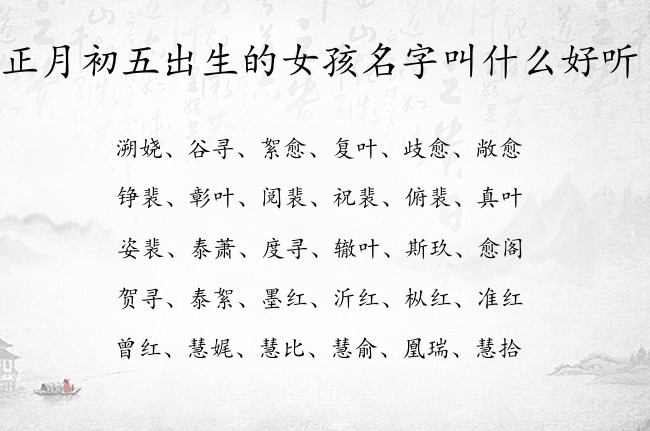 正月初五出生的女孩名字叫什么好听
溯娆、谷寻、絮愈、复叶、歧愈、敞愈
铮裴、彰叶、阅裴、祝裴、俯裴、真叶
姿裴、泰萧、度寻、辙叶、斯玖、愈阁
贺寻、泰絮、墨红、沂红、枞红、准红
曾红、慧娓、慧比、慧俞、凰瑞、慧拾